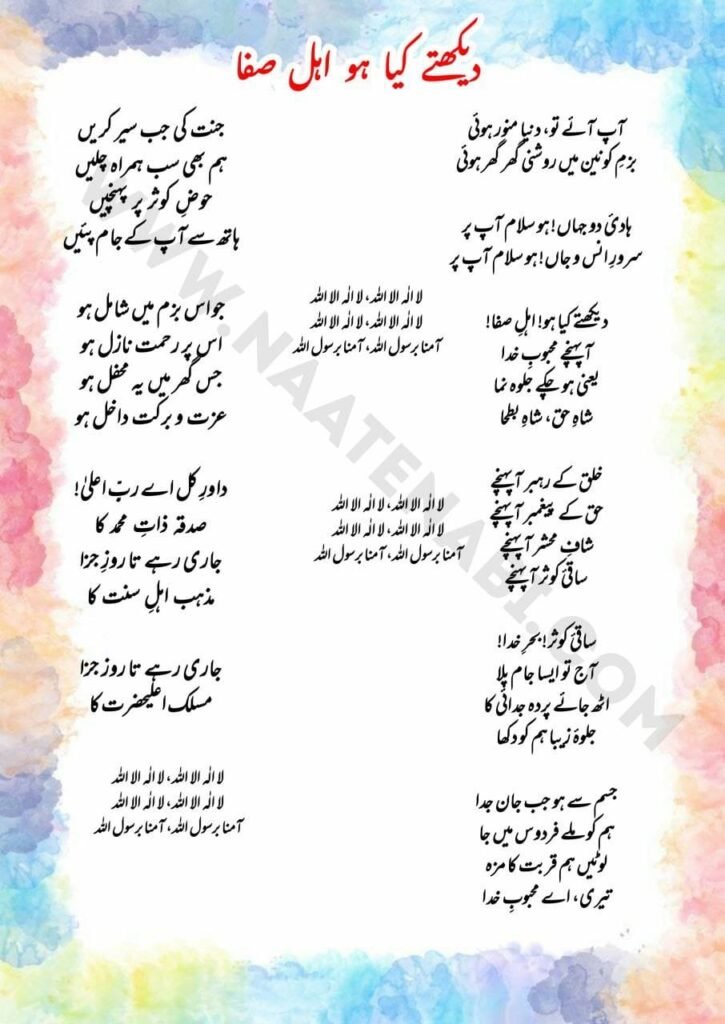 دیکھتے کیا ہو اہل صفا
آپ آئے تو، دنیا منور ہوئی
بزمِ کونین میں روشنی گھر گھر ہوئی
ہادیٔ دو جہاں! ہو سلام آپ پر
سرورِ انس و جاں! ہو سلام آپ پر
دیکھتے کیا ہو! اہلِ صفا!
آپہنچے محبوبِ خدا
یعنی ہو چکے جلوہ نما
شاہِ حق، شاہِ بطحا
خلق کے رہبر آپہنچے
حق کے پیغمبر آپہنچے
شافِ محشر آپہنچے
ساقیٔ کوثر آپہنچے
ساقیٔ کوثر! بحرِ خدا!
آج تو ایسا جام پلا
اٹھ جائے پردہ جدائی کا
جلوۂ زیبا ہم کو دکھا
جسم سے ہو جب جان جدا
ہم کو ملے فردوس میں جا
لوٹیں ہم قربت کا مزہ
تیری، اے محبوبِ خدا
لا الٰہ الا اللہ، لا الٰہ الا اللہ
لا الٰہ الا اللہ، لا الٰہ الا اللہ
آمنا برسول اللہ، آمنا برسول اللہ
لا الٰہ الا اللہ، لا الٰہ الا اللہ
لا الٰہ الا اللہ، لا الٰہ الا اللہ
آمنا برسول اللہ، آمنا برسول اللہ
جنت کی جب سیر کریں
ہم بھی سب ہمراہ چلیں
حوضِ کوثر پر پہنچیں
ہاتھ سے آپ کے جام پئیں
جو اس بزم میں شامل ہو
اس پر رحمت نازل ہو
جس گھر میں یہ محفل ہو
عزت و برکت داخل ہو
داورِ کل اے ربّ اعلیٰ!
صدقہ ذاتِ محمد کا
جاری رہے تا روزِ جزا
مذہب اہلِ سنت کا
جاری رہے تا روز جزا
مسلک اعلیحضرت کا
لا الٰہ الا اللہ، لا الٰہ الا اللہ
لا الٰہ الا اللہ، لا الٰہ الا اللہ
آمنا برسول اللہ، آمنا برسول اللہ
WWW.NAATENABI.COM